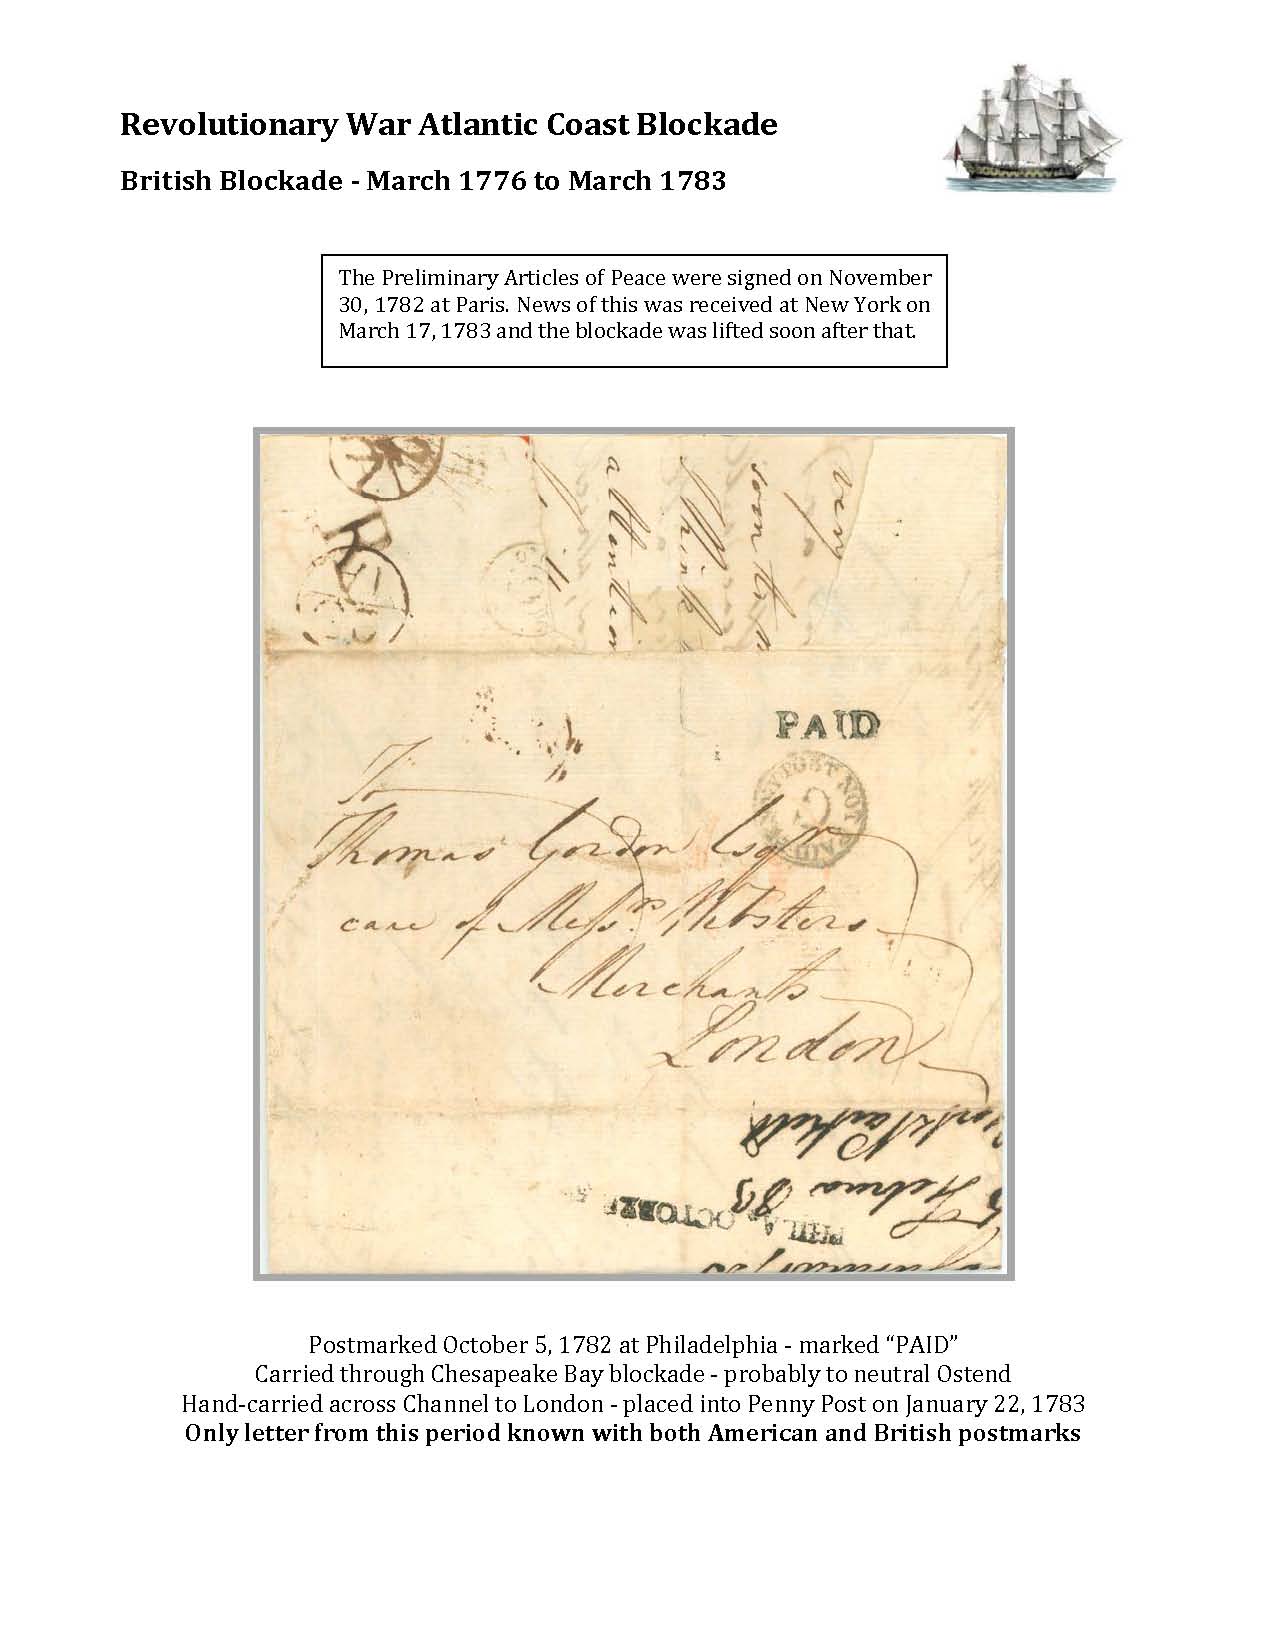 Revolutionary War Atlantic Coast Blockade
British Blockade - March 1776 to March 1783
The Preliminary Articles of Peace were signed on November
30, 1782 at Paris. News of this was received at New York on
March 17, 1783 and the blockade was lifted soon after that.
very
soon
think
attention
PAID
POST NOT
To
Thomas Gordon Esqr
care of Messrs. Websters
Merchants
London
PHILA. OCTOBER
Postmarked October 5, 1782 at Philadelphia - marked “PAID”
Carried through Chesapeake Bay blockade - probably to neutral Ostend
Hand-carried across Channel to London - placed into Penny Post on January 22, 1783
Only letter from this period known with both American and British postmarks